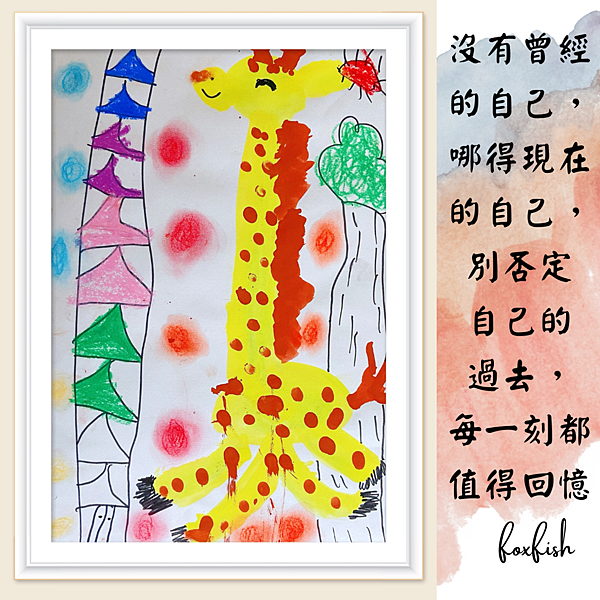 沒有曾經
的自己，
哪得現在
的自己，
別否定
自己的
過去，
每一刻都
值得回憶
foxfish